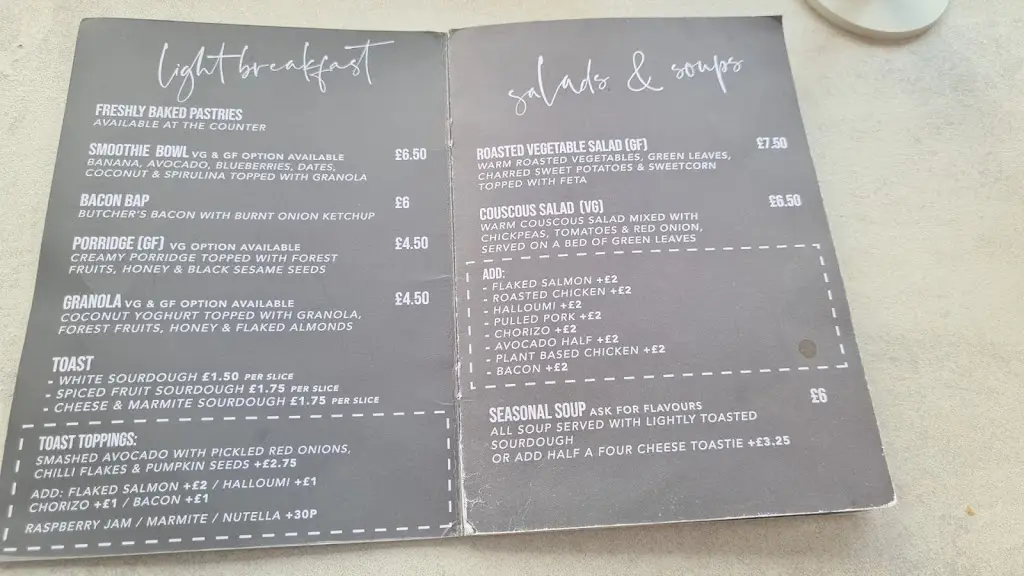 light breakfast
FRESHLY BAKED PASTRIES
AVAILABLE AT THE COUNTER
SMOOTHIE BOWL VG & GF OPTION AVAILABLE £6.50
BANANA, AVOCADO, BLUEBERRIES, DATES,
COCONUT & SPIRULINA TOPPED WITH GRANOLA
BACON BAP £6
BUTCHER'S BACON WITH BURNT ONION KETCHUP
PORRIDGE (GF) VG OPTION AVAILABLE £4.50
CREAMY PORRIDGE TOPPED WITH FOREST
FRUITS, HONEY & BLACK SESAME SEEDS
GRANOLA VG & GF OPTION AVAILABLE £4.50
COCONUT YOGHURT TOPPED WITH GRANOLA,
FOREST FRUITS, HONEY & FLAKED ALMONDS
TOAST
- WHITE SOURDOUGH £1.50 PER SLICE
- SPICED FRUIT SOURDOUGH £1.75 PER SLICE
- CHEESE & MARMITE SOURDOUGH £1.75 PER SLICE
TOAST TOPPINGS:
SMASHED AVOCADO WITH PICKLED RED ONIONS,
CHILLI FLAKES & PUMPKIN SEEDS +£2.75
ADD: FLAKED SALMON +£2 / HALLOUMI +£1
CHORIZO +£1 / BACON +£1
RASPBERRY JAM / MARMITE / NUTELLA +30P
salads & soups
ROASTED VEGETABLE SALAD (GF) £7.50
WARM ROASTED VEGETABLES, GREEN LEAVES,
CHARRED SWEET POTATOES & SWEETCORN
TOPPED WITH FETA
COUSCOUS SALAD (VG) £6.50
WARM COUSCOUS SALAD MIXED WITH
CHICKPEAS, TOMATOES & RED ONION,
SERVED ON A BED OF GREEN LEAVES
ADD:
- FLAKED SALMON +£2
- ROASTED CHICKEN +£2
- HALLOUMI +£2
- PULLED PORK +£2
- CHORIZO +£2
- AVOCADO HALF +£2
- PLANT BASED CHICKEN +£2
- BACON +£2
SEASONAL SOUP ASK FOR FLAVOURS £6
ALL SOUP SERVED WITH LIGHTLY TOASTED
SOURDOUGH
OR ADD HALF A FOUR CHEESE TOASTIE +£3.25